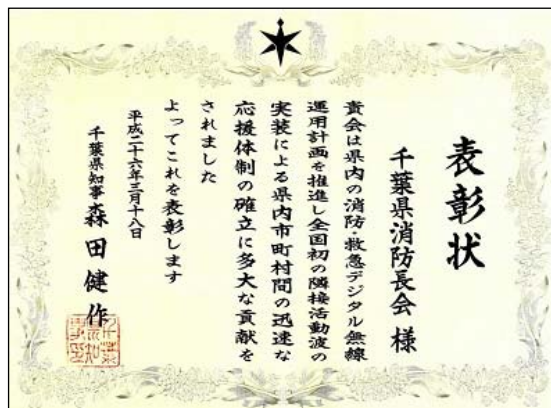 表彰状
千葉県消防長会 様
貴会は県内の消防・救急デジタル無線
運用計画を推進し全国初の隣接活動波の
実装による県内市町村間の迅速な
応援体制の確立に多大な貢献を
されました
よってこれを表彰します
平成二十六年三月十八日
千葉県知事 森田健作